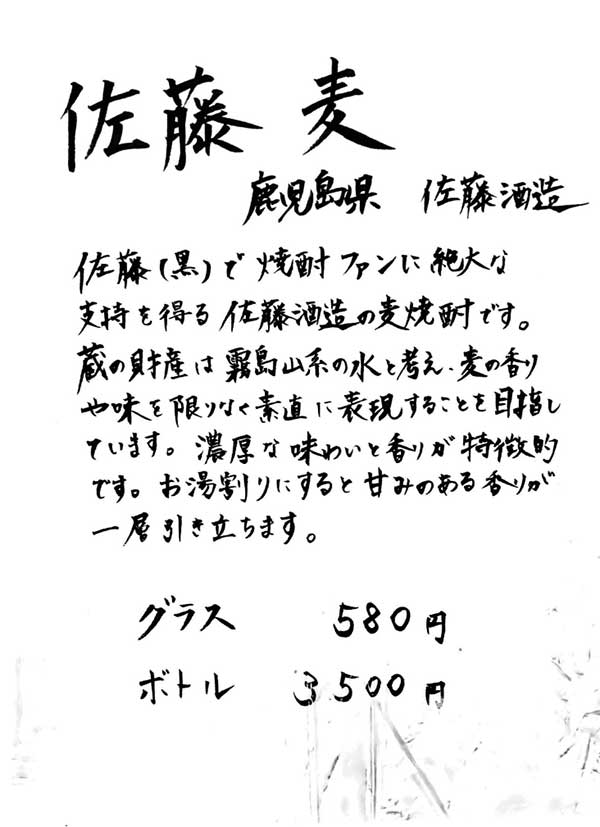 佐藤 麦
鹿児島県 佐藤酒造
佐藤(黒)で焼酎ファンに絶大な
支持を得る佐藤酒造の麦焼酎です。
蔵の財産は霧島山系の水と考え、麦の香り
や味を限りなく素直に表現することを目指し
ています。濃厚な味わいと香りが特徴的
です。お湯割りにすると甘みのある香りが
一層引き立ちます。
グラス 580円
ボトル 3500円